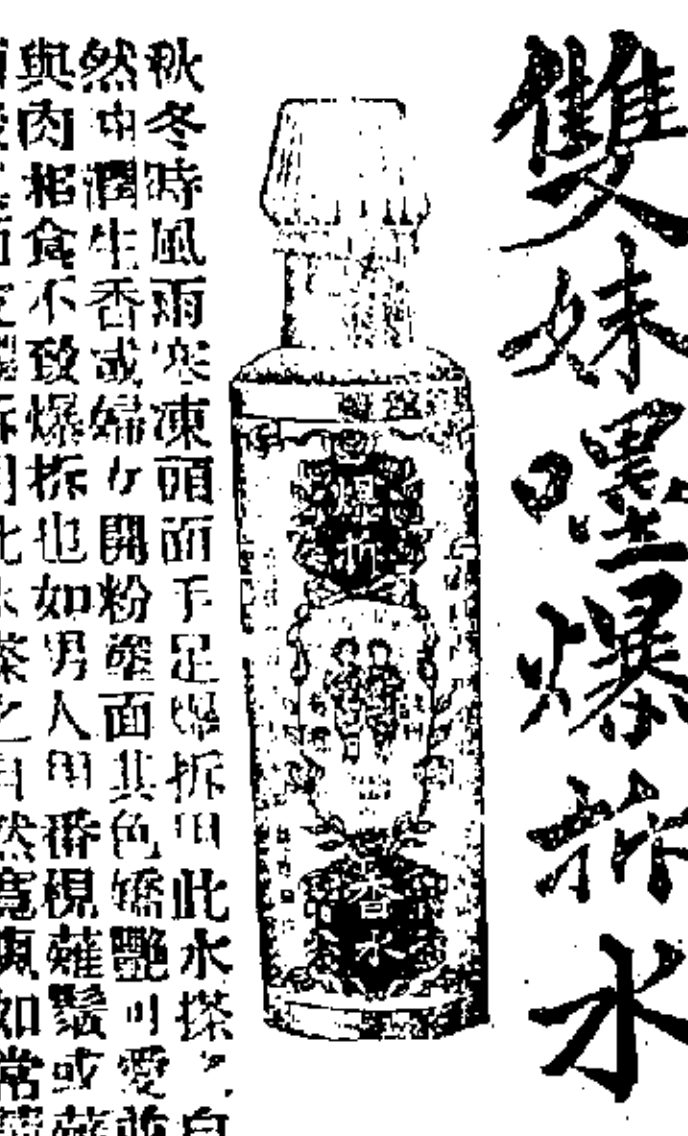 雙妹嚜爆拆水
爆拆
香水
秋冬時風雨寒凍頭面手足爆拆用此水搽之自
然肉潤生香或婦女開粉搽面其色嬌艷可愛並
與肉相食不致爆拆也如男人用番梘薙鬚或薙
面皮爆拆用此水搽之自然寬頤如常